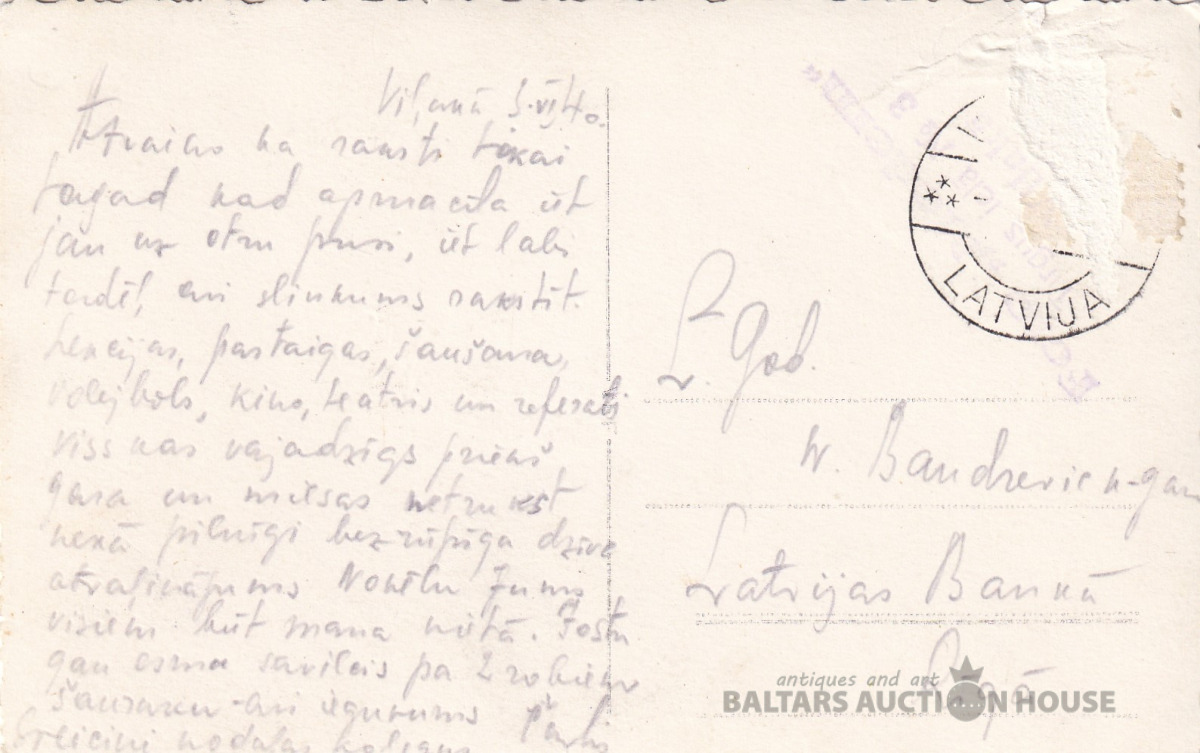 Viļanā 3.VII 40.
Atvaino ka rakstu tikai
tagad kad apmacība iet
jau uz otru pusi, iet labi
tādēļ, ari slinkums rakstīt.
Lekcijas, pastaigas, šaušana,
volejbols, kino, teatris un referati
viss kas vajadzīgs priekš
gara un miesas netrukst
nekā pilnīgi bezrūpīga dzīve
atvaļinājums Novēlu Jums
visiem būt mana vietā. Jostu
gan esmu savilcis pa 2 robiem
šauraku - ari ieguvums
Sveicini nodaļas kolegus
L. God.
kr. Bandrevic k-gam
Latvijas Bankā
Rīgā
LATVIJA
antiques and art
BALTARS AUCTION HOUSE